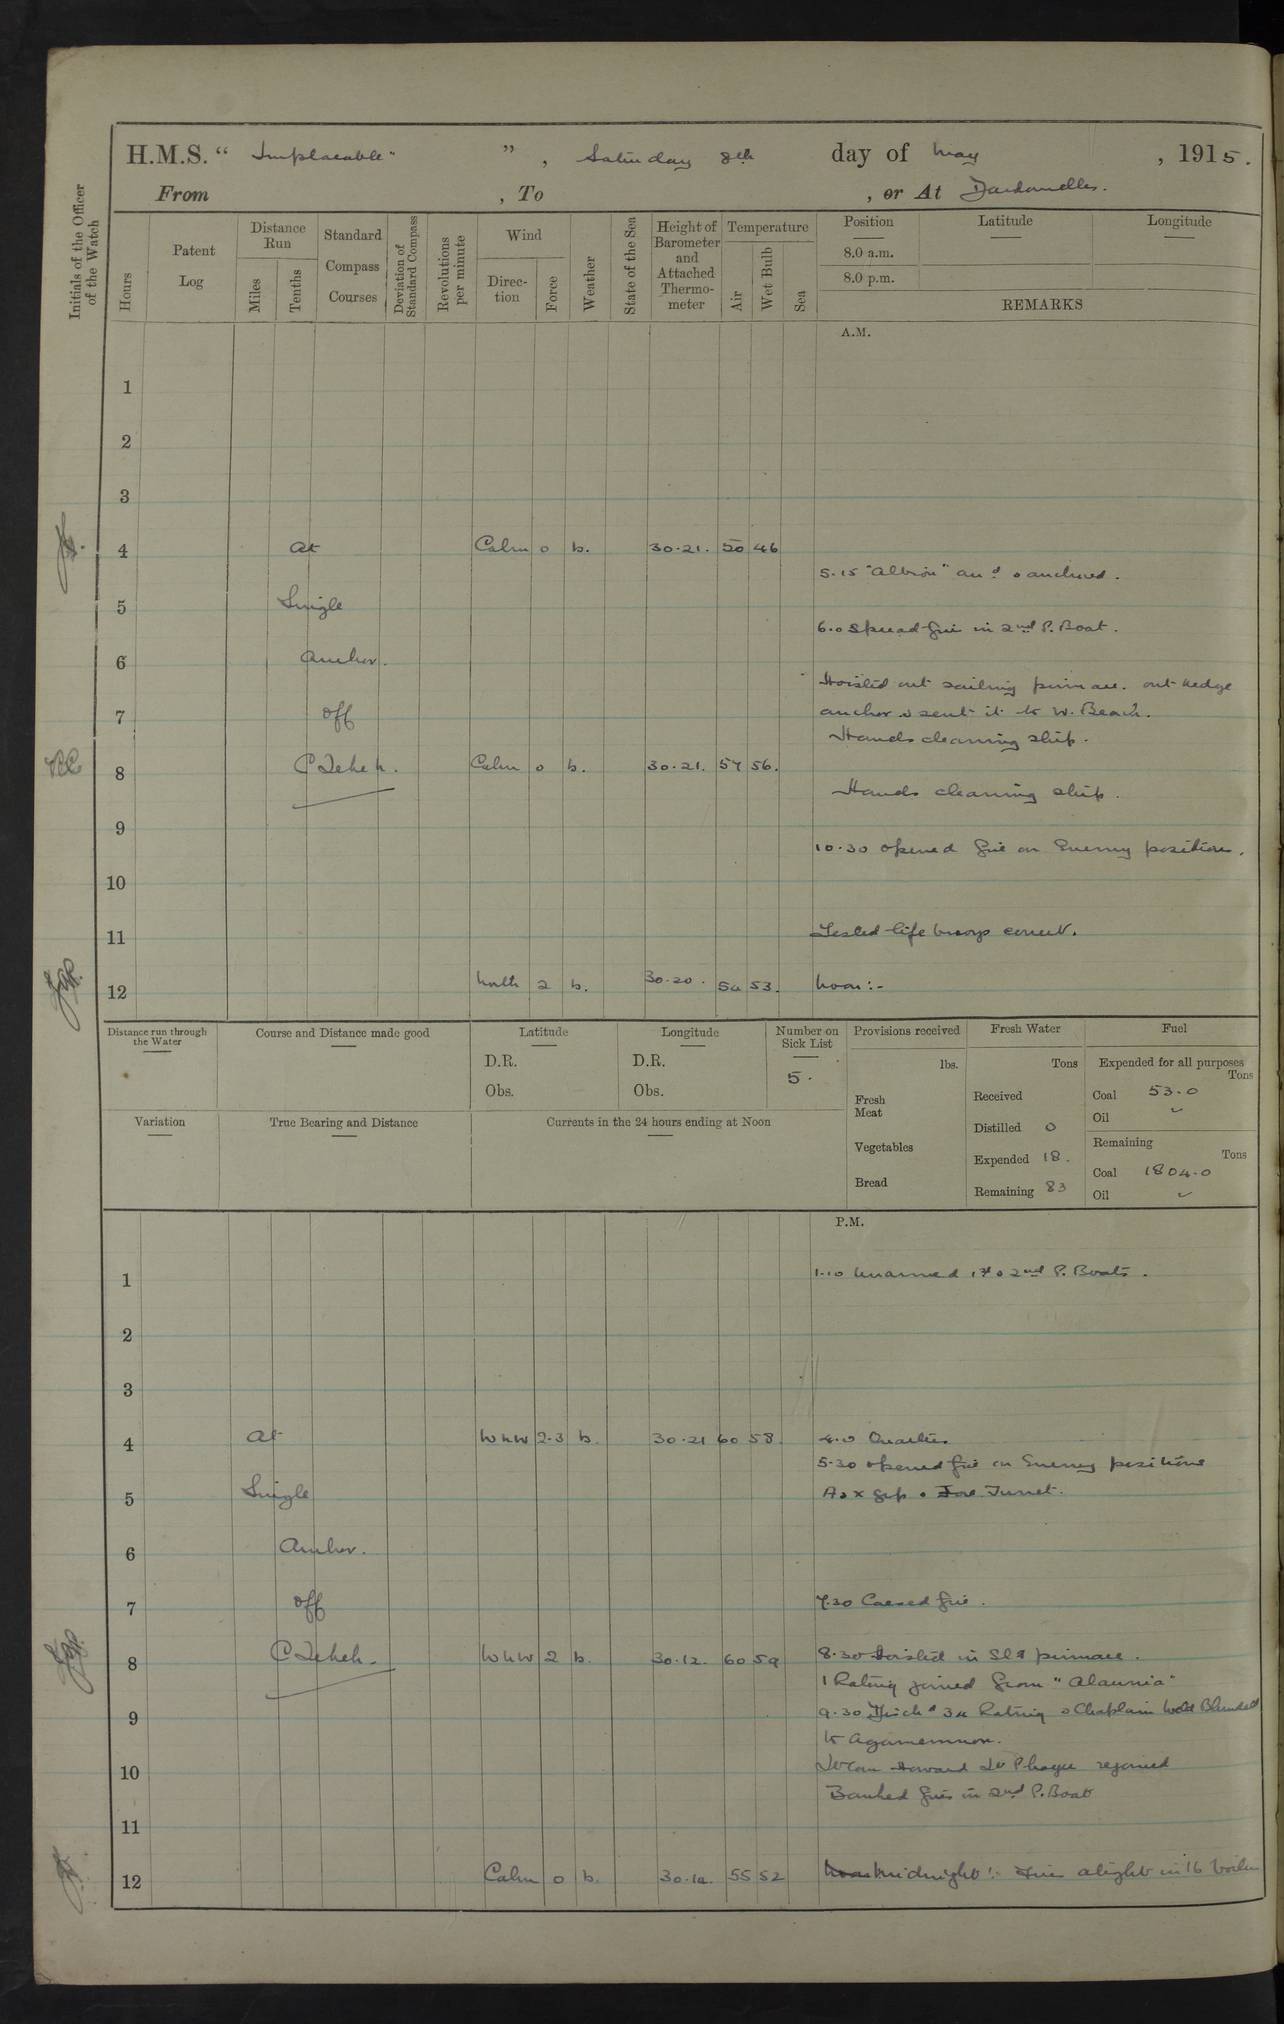 H.M.S. “ Implacable” ” , Saturday 8th day of May , 1915.
From , To , or At Dardanelles.
Initials of the Officer of the Watch
Hours
Patent Log
Distance Run
Miles
Tenths
Standard Compass Courses
Deviation of Standard Compass
Revolutions per minute
Wind
Direction
Force
Weather
State of the Sea
Height of Barometer and Attached Thermometer
Temperature
Air
Wet Bulb
Sea
Position
8.0 a.m.
8.0 p.m.
Latitude
Longitude
REMARKS
A.M.
1
2
3
4 At Calm 0 b. 30.21. 50 46
5.15 "Albion" arrd & anchored.
5 Single
6.0 Spread fire in 2nd P. Boat.
6 Anchor.
Hoisted out sailing pinnace. out kedge
7 off anchor & sent it to W. Beach.
Hands cleaning ship.
8 C Tekeh. Calm 0 b. 30.21. 57 56.
Hands cleaning ship.
9
10.30 opened fire on Enemy position.
10
11 Tested life buoys correct.
12 North 2 b. 30.20. 54 53. Noon:-
Distance run through the Water
Course and Distance made good
Latitude
D.R.
Obs.
Longitude
D.R.
Obs.
Number on Sick List
5.
Provisions received
lbs.
Fresh Meat
Vegetables
Bread
Fresh Water
Tons
Received
Distilled 0
Expended 18.
Remaining 83
Fuel
Expended for all purposes
Tons
Coal 53.0
Oil
Remaining
Tons
Coal 1804.0
Oil
Variation
True Bearing and Distance
Currents in the 24 hours ending at Noon
P.M.
1 1.10 Unarmed 1st & 2nd P. Boats.
2
3
4 At WNW 2-3 b. 30.21 60 58. 4.0 Quarters
5.30 opened fire on Enemy positions
5 Single A2 X grp & Fore Turret.
6 Anchor.
7 off 7.30 Ceased fire.
8 C Tekeh. WNW 2 b. 30.12. 60 59 8.30 Hoisted in Slg pinnace.
1 Rating joined from "Alaunia"
9 9.30 Disch'd 34 Rating & Chaplain Weld Blundell
to Agamemnon.
10 Lt Com Howard Lt rejoined
Banked fires in 2nd P. Boat
11
12 Calm 0 b. 30.12. 55 52 Noon Midnight:- Fires alight in 16 boilers